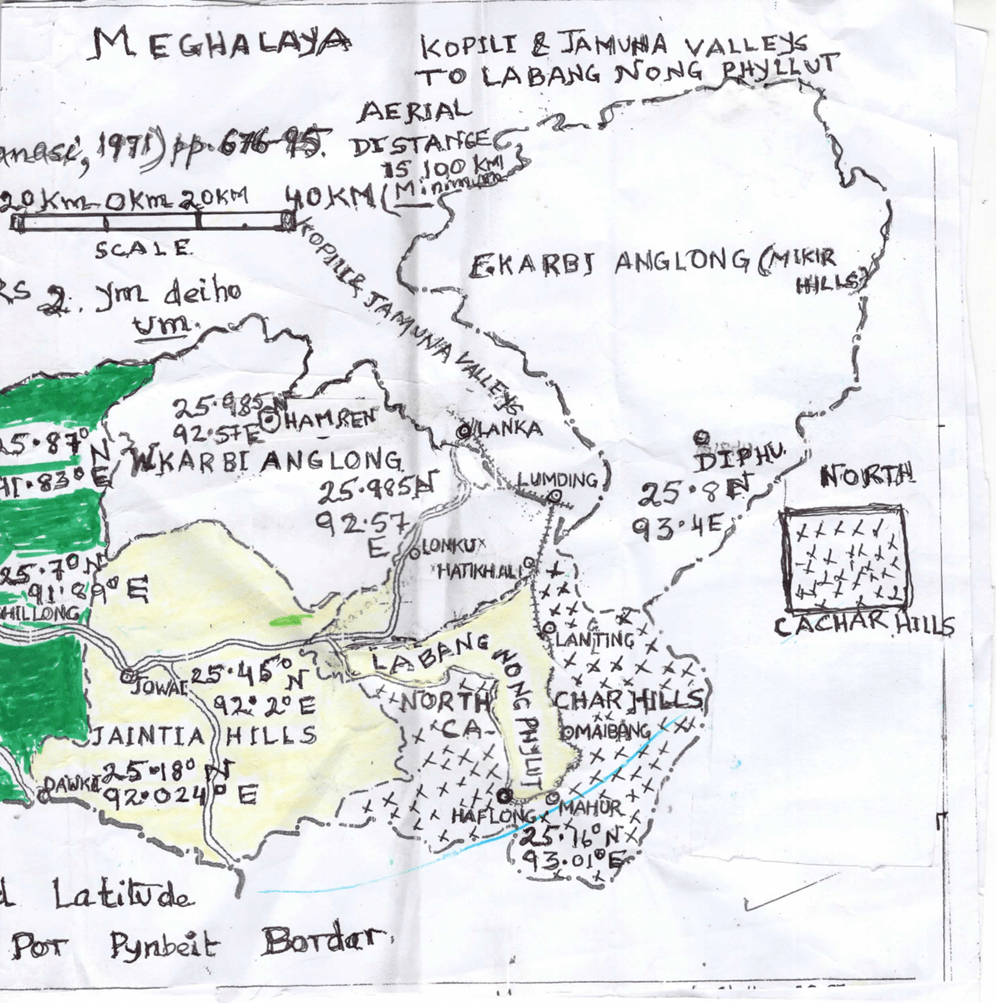 MEGHALAYA
KOPILI & JAMUNA VALLEYS
TO LABANG NONG PHYLLUT
AERIAL
DISTANCE
IS 100 KM
(Minimum
anasi, 1971) pp. 676-95.
20Km 0Km 20KM 40KM
SCALE
KOPILI & JAMUNA VALLEYS
EKARBI ANGLONG (MIKIR
HILLS)
RS 2. ym deiho
um.
25.985N
92.57E
HAMREN
LANKA
25.87°N
91.83°E
WKARBI ANGLONG
DIPHU
25.8N
93.4E
NORTH
CACHAR HILLS
25.985N
92.57
E
LUMDING
LONKU
HATIKHALI
25.7°N
91.89°E
SHILLONG
LANTING
LABANG NONG PHYLUT
JOWAI
25.45°
N
92.2°E
NORTH
CA-
CHAR HILLS
MAIBANG
JAINTIA HILLS
DAWKI
25.18°N
92.024°E
HAFLONG
MAHUR
25.16°N
93.01°E
d Latitude
Por Pynbeit Bordar.